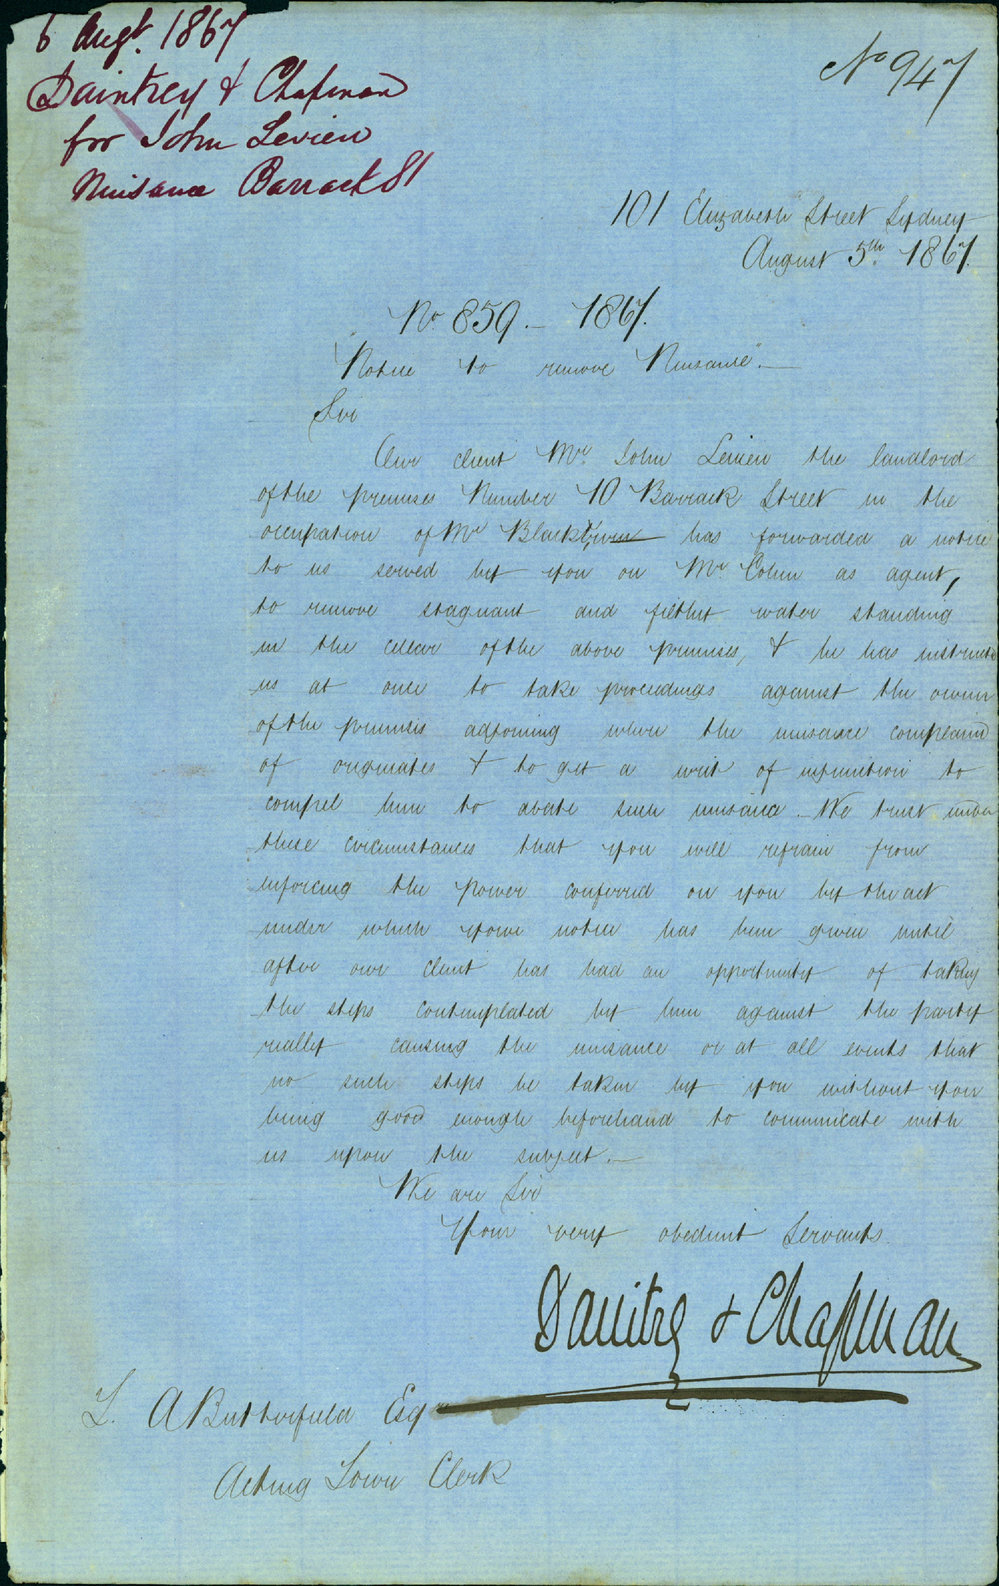 6 Augt. 1867
Daintrey & Chapman
for John Levien
Nuisance Barrack St
No 947
101 Elizabeth Street Sydney
August 5th. 1867.
No. 859. – 1867.
"Notice to remove Nuisance". —
Sir
Our client Mr. John Levien the landlord
of the premises Number 10 Barrack Street in the
occupation of Mr has forwarded a notice
to us served by you on Mr. Cohen as agent,
to remove stagnant and filthy water standing
in the cellar of the above premises, & he has instructed
us at once to take proceedings against the owner
of the premises adjoining where the nuisance complained
of originates & to get a writ of injunction to
compel him to abate such nuisance. – We trust under
these circumstances that you will refrain from
enforcing the power conferred on you by the act
under which your notice has been given until
after our client has had an opportunity of taking
the steps contemplated by him against the party
really causing the nuisance or at all events that
no such steps be taken by you without you
being good enough beforehand to communicate with
us upon the subject. —
We are Sir
Your very obedient Servants.
Daintrey & Chapman
A Butterfield Esqr
Acting Town Clerk